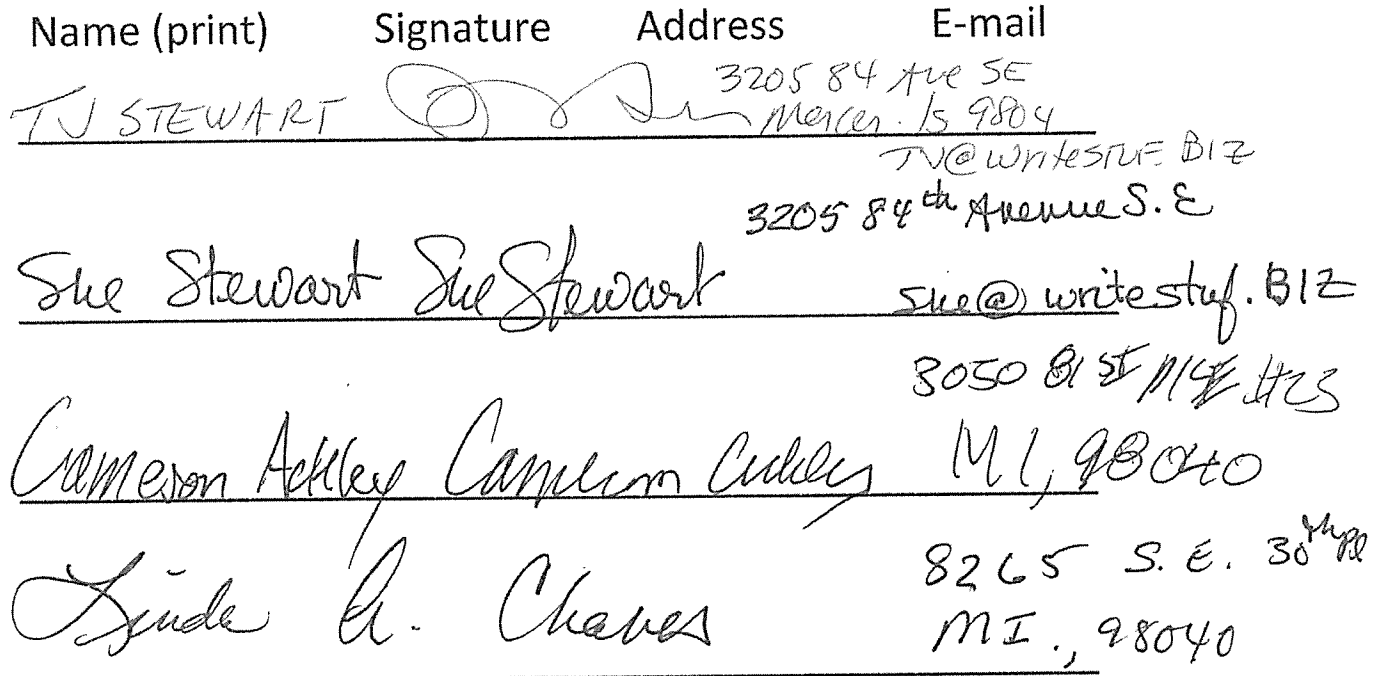 Name (print) Signature Address E-mail
TJ STEWART 3205 84 Ave SE
Mercer Is 9804
TJ@writestuf.BIZ
3205 84th Avenue S.E
Sue Stewart Sue Stewart sue@writestuf.BIZ
3050 81st #23
Cameron Ackley Cameron Ackley MI, 98040
8265 S.E. 30th Pl
Linda A. Chaves MI., 98040